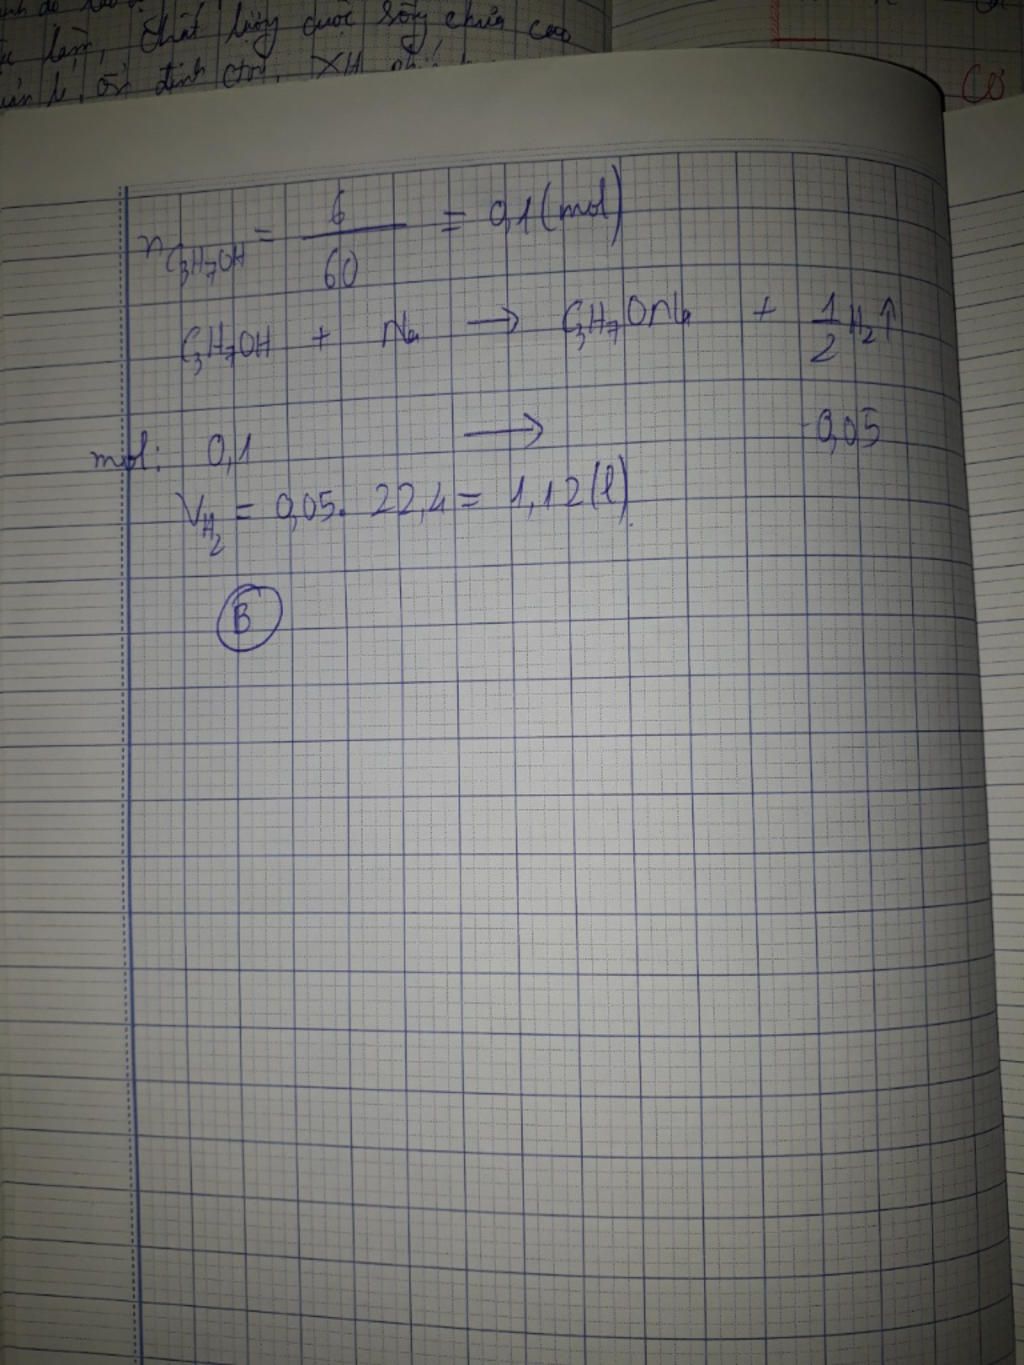 lầm, chất lượng cuộc sống chưa cao
định ctrị, XH
n C₃H₇OH = 6/60 = 0,1 (mol)
C₃H₇OH + Na → C₃H₇ONa + 1/2 H₂↑
mol: 0,1 → 0,05
V H₂ = 0,05. 22,4 = 1,12 (l)
B